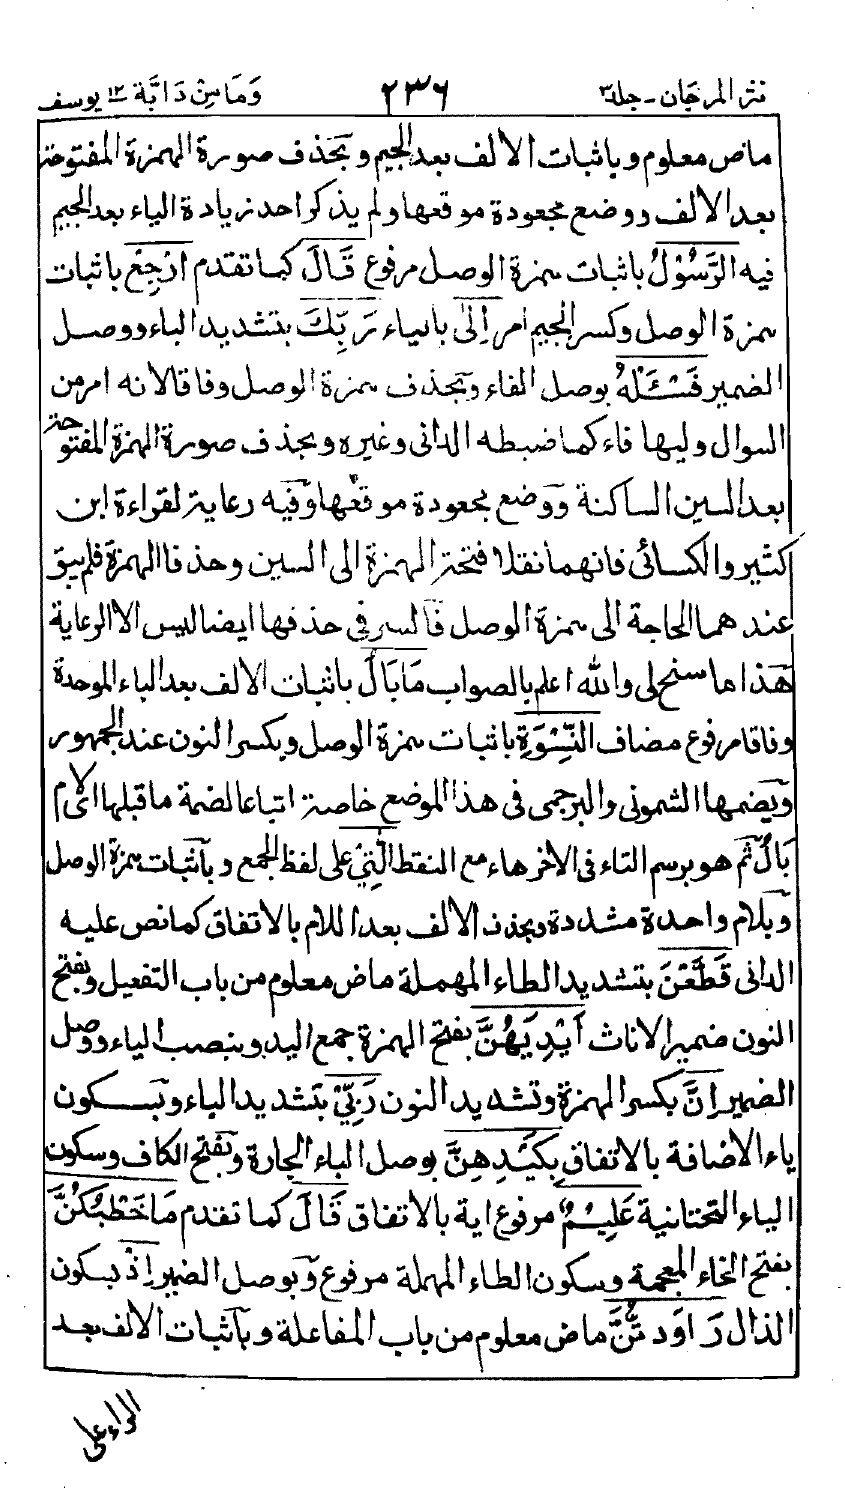 نثر المرجان - جلد ٣ ٢٣٦ وَمَا مِنْ دَابَّة ١٢ يوسف
ماض معلوم وباثبات الالف بعد الجيم وبحذف صورة الهمزة المفتوحة
بعد الالف ووضع مجعودة موقعها ولم يذكر احد زيادة الياء بعد الجيم
فيه الرَّسُوْلُ باثبات همزة الوصل مرفوع قَالَ كما تقدم ارْجِعْ باثبات
همزة الوصل وكسر الجيم امر اِلٰى بالياء رَبِّكَ بتشديد الباء ووصل
الضمير فَسْـَٔلْهُ بوصل الفاء وبحذف همزة الوصل وفاقا لانه امر من
السوال وليها فاء كما ضبطه الدانى وغيره وبحذف صورة الهمزة المفتوحة
بعد السين الساكنة ووضع مجعودة موقعها وفيه رعاية لقراءة ابن
كثير والكسائى فانهما نقلا فتحة الهمزة الى السين وحذفا الهمزة فلم يبق
عندهما الحاجة الى همزة الوصل فالسر فى حذفها ايضا ليس الا الرعاية
هٰذا ما سنح لى والله اعلم بالصواب مَابَالُ باثبات الالف بعد الباء الموحدة
وفاقا مرفوع مضاف النِّسْوَةِ باثبات همزة الوصل وبكسر النون عند الجمهور
ويضمها الشمونى والبرجمى فى هذا الموضع خاصة اتباعا لضمة ما قبلها اى لام
بَالُ ثم هو برسم التاء فى الاخر هاء مع النقط الّٰتِىْ على لفظ الجمع وباثبات همزة الوصل
وبلام واحدة مشددة وبحذف الالف بعد اللام بالاتفاق كما نص عليه
الدانى قَطَّعْنَ بتشديد الطاء المهملة ماض معلوم من باب التفعيل وبفتح
النون ضمير الاناث اَيْدِيَهُنَّ بفتح الهمزة جمع اليد وبنصب الياء ووصل
الضمير اِنَّ بكسر الهمزة وتشديد النون رَبِّىْ بتشديد الباء وبسكون
ياء الاضافة بالاتفاق بِكَيْدِهِنَّ بوصل الباء الجارة وبفتح الكاف وسكون
الياء التحتانية عَلِيْمٌ مرفوع اية بالاتفاق قَالَ كما تقدم مَا خَطْبُكُنَّ
بفتح الخاء المعجمة وسكون الطاء المهملة مرفوع وبوصل الضمير اِذْ بسكون
الذال رَاوَدْتُّنَّ ماض معلوم من باب المفاعلة وباثبات الالف بعد
الراء على